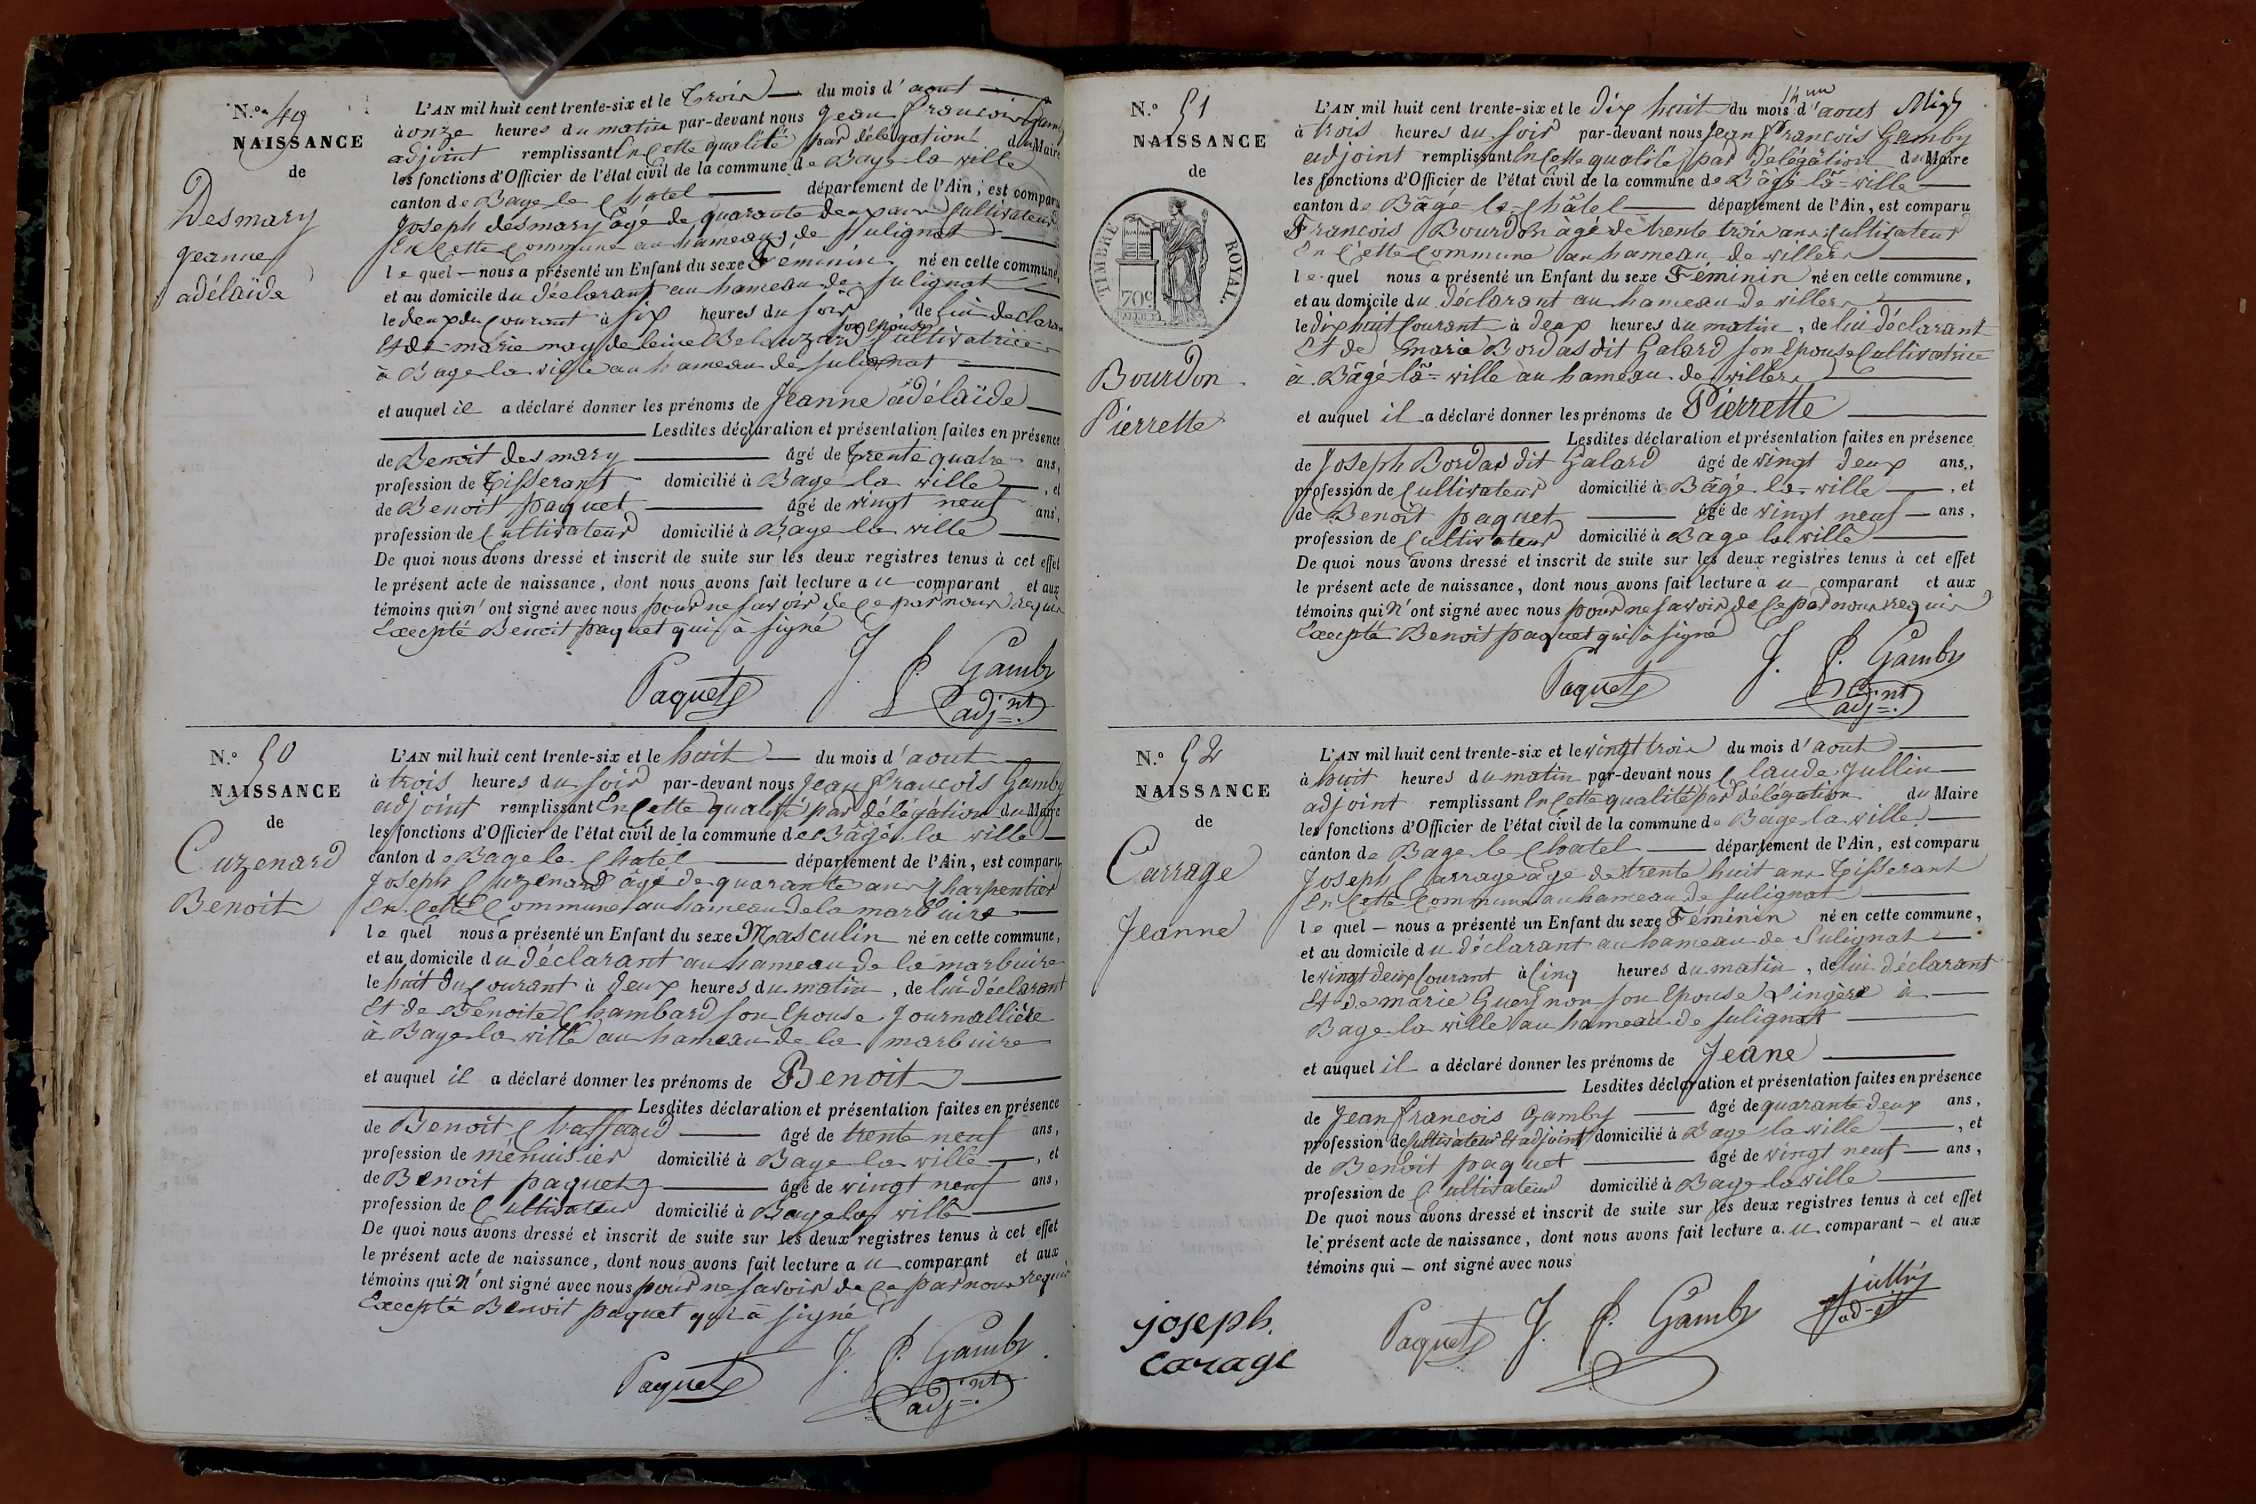 N.o 49
NAISSANCE
de
Desmary
jeanne
adélaïde
L'AN mil huit cent trente-six et le Trois du mois d'aout
à onze heures du matin par-devant nous Jean francois Gamby
adjoint remplissant En Cette qualité par délégation du Maire
les fonctions d'Officier de l'état civil de la commune de Bage la ville
canton de Bage le Chatel département de l'Ain, est comparu
Joseph desmary âgé de quarante deux ans Cultivateur
En Cette Commune au hameau de Sulignat
le quel nous a présenté un Enfant du sexe Féminin né en cette commune,
et au domicile du déclarant au hameau de Sulignat
le deux du Courant à six heures du soir, de lui déclarant
son Epouse
Et de marie magdeleine Belouzard Cultivatrice
à Bage la ville au hameau de Sulignat
et auquel il a déclaré donner les prénoms de Jeanne adélaïde
Lesdites déclaration et présentation faites en présence
de Benoit desmary âgé de Trente quatre ans,
profession de Tisserant domicilié à Bage la ville, et
de Benoit paquet âgé de vingt neuf ans,
profession de Cultivateur domicilié à Bage la ville
De quoi nous avons dressé et inscrit de suite sur les deux registres tenus à cet effet
le présent acte de naissance, dont nous avons fait lecture au comparant et aux
témoins qui n'ont signé avec nous pour ne savoir de Ce par nous requis
Excepté Benoit paquet qui à signé
Paquet J. f. Gamby
adj.nt
N.o 50
NAISSANCE
de
Cuzenard
Benoit
L'AN mil huit cent trente-six et le huit du mois d'aout
à trois heures du soir par-devant nous Jean francois Gamby
adjoint remplissant En Cette qualité par délégation du Maire
les fonctions d'Officier de l'état civil de la commune de Bâgé la ville
canton de Bage le Chatel département de l'Ain, est comparu
Joseph Cuzenard âgé de quarante ans Charpentier
En Cette Commune au hameau de la marbuire
le quel nous a présenté un Enfant du sexe Masculin né en cette commune,
et au domicile du déclarant au hameau de la marbuire
le huit du Courant à deux heures du matin, de lui déclarant
Et de Benoite Chambard son Epouse Journallière
à Bage la ville au hameau de la marbuire
et auquel il a déclaré donner les prénoms de Benoit
Lesdites déclaration et présentation faites en présence
de Benoit Chaffard âgé de trente neuf ans,
profession de menuisier domicilié à Bage la ville, et
de Benoit paquet âgé de vingt neuf ans,
profession de Cultivateur domicilié à Bage la ville
De quoi nous avons dressé et inscrit de suite sur les deux registres tenus à cet effet
le présent acte de naissance, dont nous avons fait lecture au comparant et aux
témoins qui n'ont signé avec nous pour ne savoir de Ce par nous requis
Excepté Benoit paquet qui à signé
Paquet J. f. Gamby
adj.nt
14me
N.o 51
NAISSANCE
de
TIMBRE ROYAL.
70c
Bourdon
Pierrette
L'AN mil huit cent trente-six et le dix huit du mois d'aout
à trois heures du soir par-devant nous Jean francois Gamby
adjoint remplissant En Cette qualité par délégation du Maire
les fonctions d'Officier de l'état civil de la commune de Bâgé-la-ville
canton de Bâgé-le-Châtel département de l'Ain, est comparu
Francois Bourdon âgé de trente trois ans Cultivateur
En Cette Commune au hameau de villers
le quel nous a présenté un Enfant du sexe Féminin né en cette commune,
et au domicile du déclarant au hameau de villers
le dix huit Courant à deux heures du matin, de lui déclarant
Et de Marie Bordas dit Galard son Epouse Cultivatrice
à Bâgé-la-ville au hameau de villers
et auquel il a déclaré donner les prénoms de Pierrette
Lesdites déclaration et présentation faites en présence
de Joseph Bordas dit Galard âgé de vingt deux ans,
profession de Cultivateur domicilié à Bâgé la-ville, et
de Benoit paquet âgé de vingt neuf ans,
profession de Cultivateur domicilié à Bage la ville
De quoi nous avons dressé et inscrit de suite sur les deux registres tenus à cet effet
le présent acte de naissance, dont nous avons fait lecture au comparant et aux
témoins qui n'ont signé avec nous pour ne savoir de Ce par nous requis
Excepté Benoit paquet qui à signé
Paquet J. f. Gamby
adj.nt
N.o 52
NAISSANCE
de
Carrage
Jeanne
L'AN mil huit cent trente-six et le vingt trois du mois d'aout
à huit heures du matin par-devant nous Claude Jullin
adjoint remplissant En Cette qualité par délégation du Maire
les fonctions d'Officier de l'état civil de la commune de Bage la ville
canton de Bage le Chatel département de l'Ain, est comparu
Joseph Carrage âgé de trente huit ans Tisserant
En Cette Commune au hameau de Sulignat
le quel nous a présenté un Enfant du sexe Féminin né en cette commune,
et au domicile du déclarant au hameau de Sulignat
le vingt deux Courant à Cinq heures du matin, de lui déclarant
Et de marie Guerynon son Epouse Lingère à
Bage la ville au hameau de Sulignat
et auquel il a déclaré donner les prénoms de Jeane
Lesdites déclaration et présentation faites en présence
de Jean francois Gamby âgé de quarante deux ans,
profession de Cultivateur & adjoint domicilié à Bage la ville, et
de Benoit paquet âgé de vingt neuf ans,
profession de Cultivateur domicilié à Bage la ville
De quoi nous avons dressé et inscrit de suite sur les deux registres tenus à cet effet
le présent acte de naissance, dont nous avons fait lecture au comparant et aux
témoins qui ont signé avec nous
joseph.
carage
Paquet J. f. Gamby jullin
ad-t